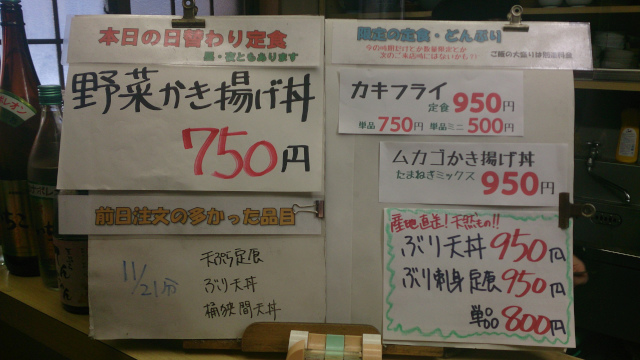 本日の日替わり定食
昼・夜ともあります
野菜かき揚げ丼
750円
前日注文の多かった品目
11/21分
天ぷら定食
ぶり天丼
桶狭間天丼
限定の定食・どんぶり
ご飯の大盛り は別途料金
カキフライ
定食 950円
単品 750円 単品ミニ 500円
ムカゴかき揚げ丼
たまねぎミックス 950円
産地直送!天然もの!!
ぶり天丼 950円
ぶり刺身定食 950円
単品 800円